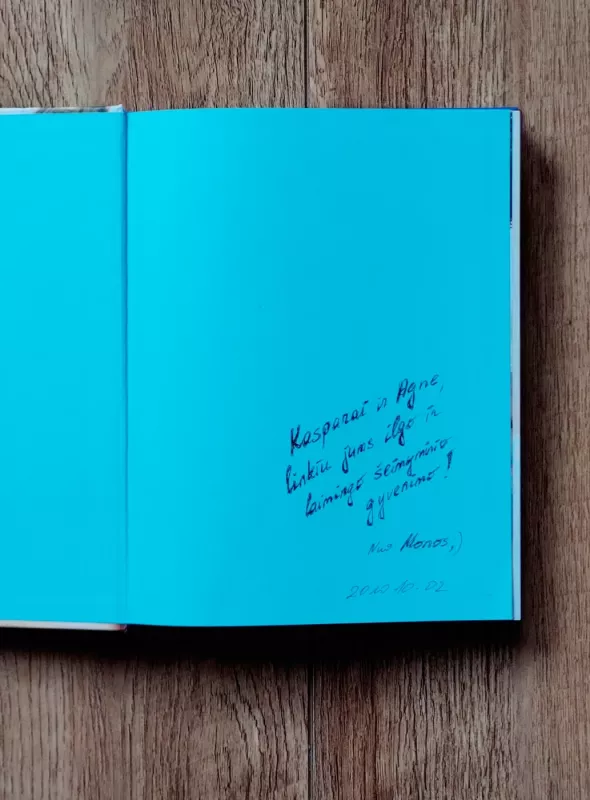 Kasparai ir Agne,
linkiu jums ilgo ir
laimingo šeimyninio
gyvenimo!
Nuo Monos,)
2010.10.02